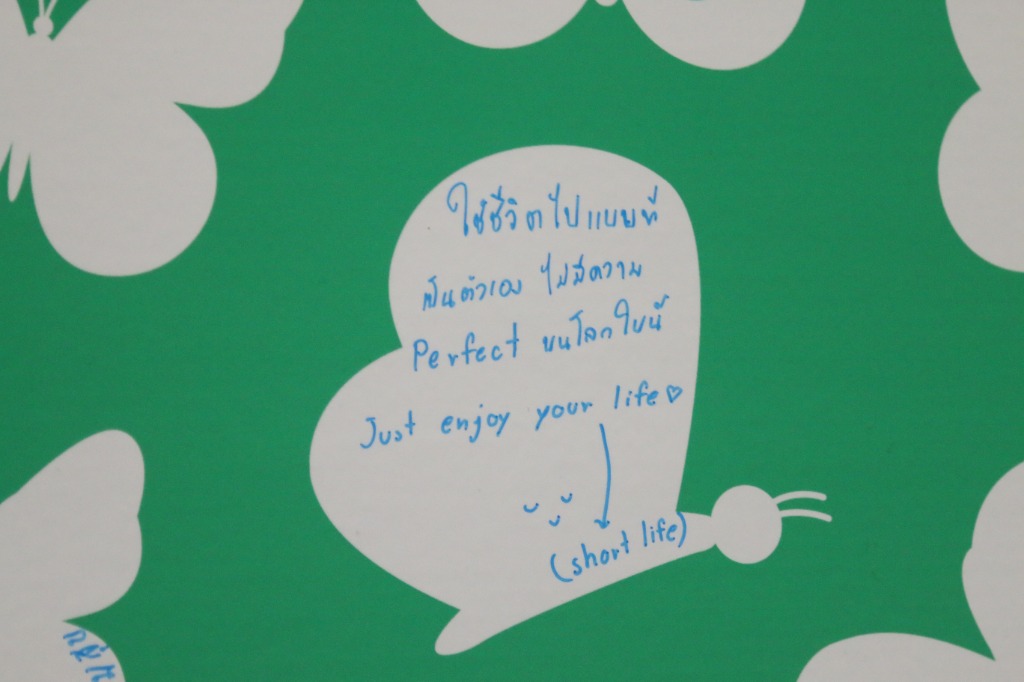 ใช้ชีวิตไปแบบที่
เป็นตัวเอง ไม่มีความ
Perfect บนโลกใบนี้
Just enjoy your life♡
(short life)